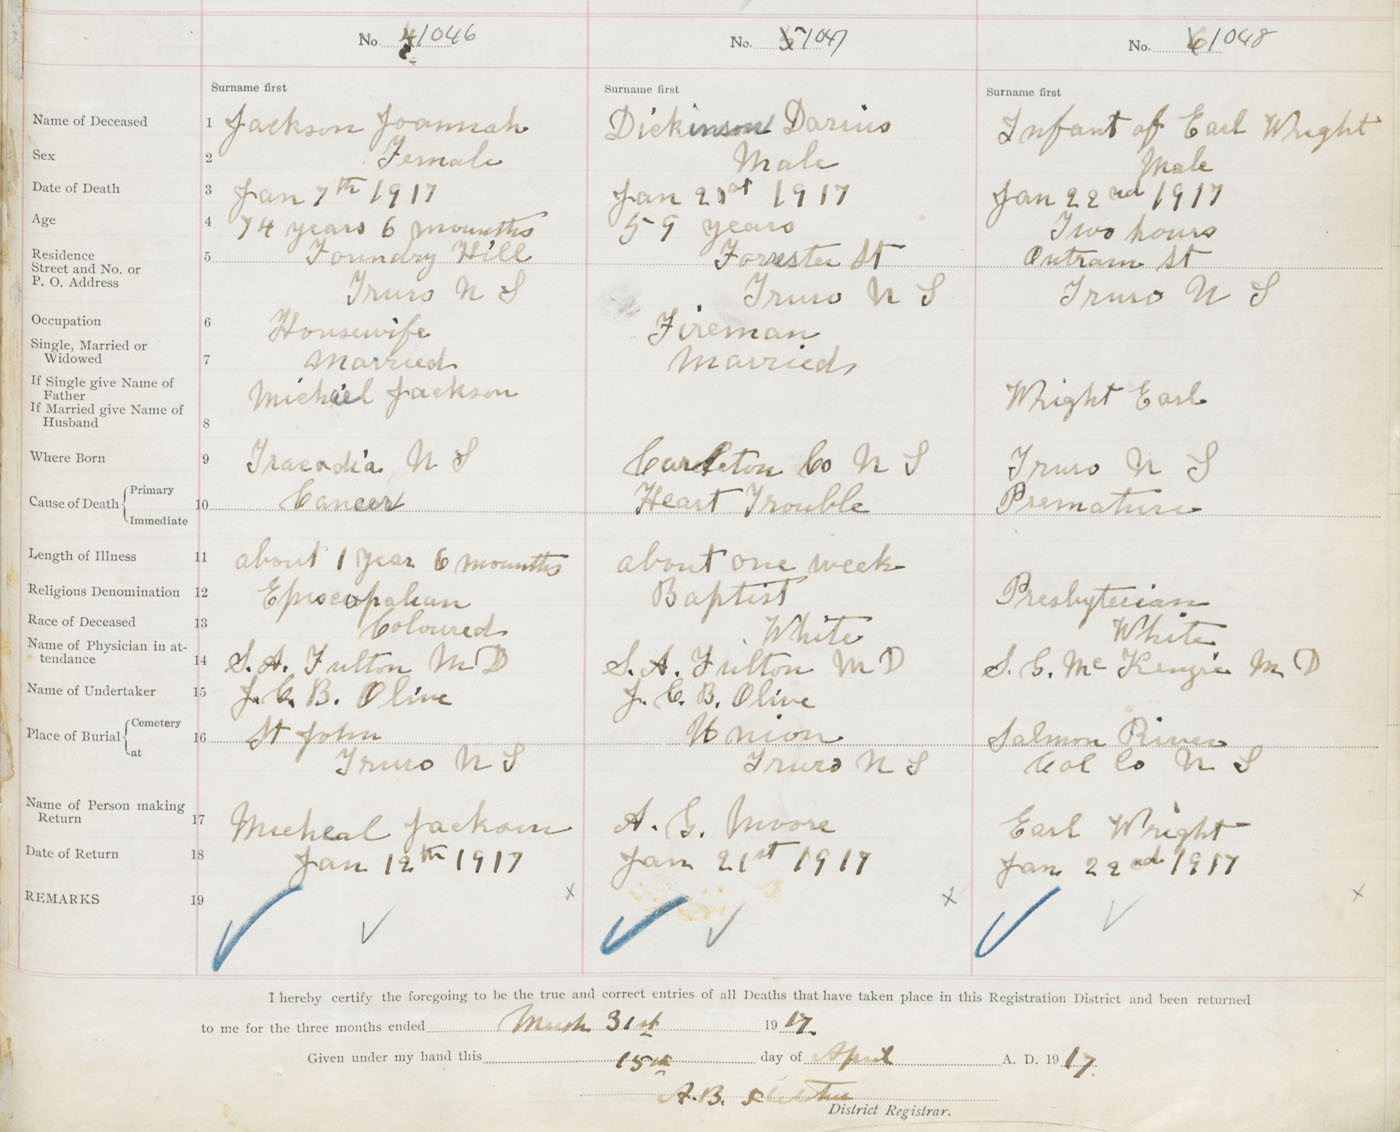 No. 1046 No. 1047 No. 1048
Surname first Surname first Surname first
Name of Deceased 1 Jackson Joannah Dickinson Darius Infant of Earl Wright
Sex 2 Female Male Male
Date of Death 3 Jan 7th 1917 Jan 21st 1917 Jan 22nd 1917
Age 4 74 years 6 mounths 59 years Two hours
Residence
Street and No. or 5 Foundry Hill Forrester St Outram St
P. O. Address Truro N S Truro N S Truro N S
Occupation 6 Housewife Fireman
Single, Married or
Widowed 7 Married Married
If Single give Name of
Father Micheal Jackson Wright Earl
If Married give Name of
Husband 8
Where Born 9 Tracadia N S Carleton Co N S Truro N S
Cause of Death Primary 10 Cancer Heart Trouble Premature
Immediate
Length of Illness 11 about 1 year 6 mounths about one week
Religious Denomination 12 Episcopalian Baptist Presbyterian
Race of Deceased 13 Coloured White White
Name of Physician in at-
tendance 14 S. A. Fulton M D S. A. Fulton M D S. C. McKenzie M D
Name of Undertaker 15 J. C. B. Olive J. C. B. Olive
Place of Burial Cemetery 16 St John Union Salmon River
at Truro N S Truro N S Col Co N S
Name of Person making
Return 17 Micheal Jackson A. G. Moore Earl Wright
Date of Return 18 Jan 12th 1917 Jan 21st 1917 Jan 22nd 1917
REMARKS 19
I hereby certify the foregoing to be the true and correct entries of all Deaths that have taken place in this Registration District and been returned
to me for the three months ended March 31st 1917.
Given under my hand this 15th day of April A. D. 1917.
A. B.
District Registrar.